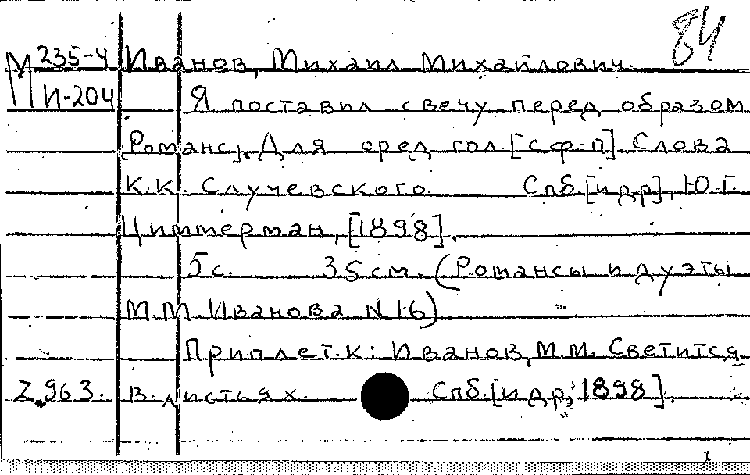 84
М 235-4 Иванов, Михаил Михайлович.
И-204 Я поставил свечу перед образом
Романс. Для сред гол. [с ф-п]. Слова
К.К. Случевского. Спб. [и др], Ю.Г.
Циммерман, [1898].
5 с. 35 см. (Романсы и дуэты
М.М. Иванова N 16)
Приплет. к: Иванов, М.М. Светится
2.963. в листьях. Спб. [и др, 1898].